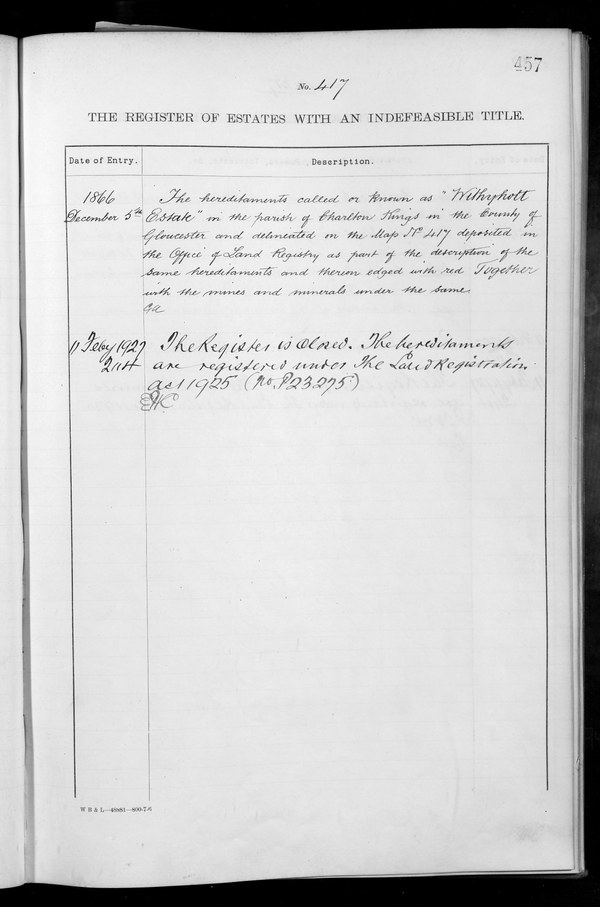 457
No. 417
THE REGISTER OF ESTATES WITH AN INDEFEASIBLE TITLE.
Date of Entry. Description.
1866 The hereditaments called or known as "Withyholt
December 5th Estate" in the parish of Charlton Kings in the County of
Gloucester and delineated on the Map No 417 deposited in
the Office of Land Registry as part of the description of the
same hereditaments and thereon edged with red Together
with the mines and minerals under the same.
11 Feby 1927 The Register is closed. The hereditaments
are registered under The Land Registration
Act 1925 (No. P23275)
W B & L—49861—800-7-6